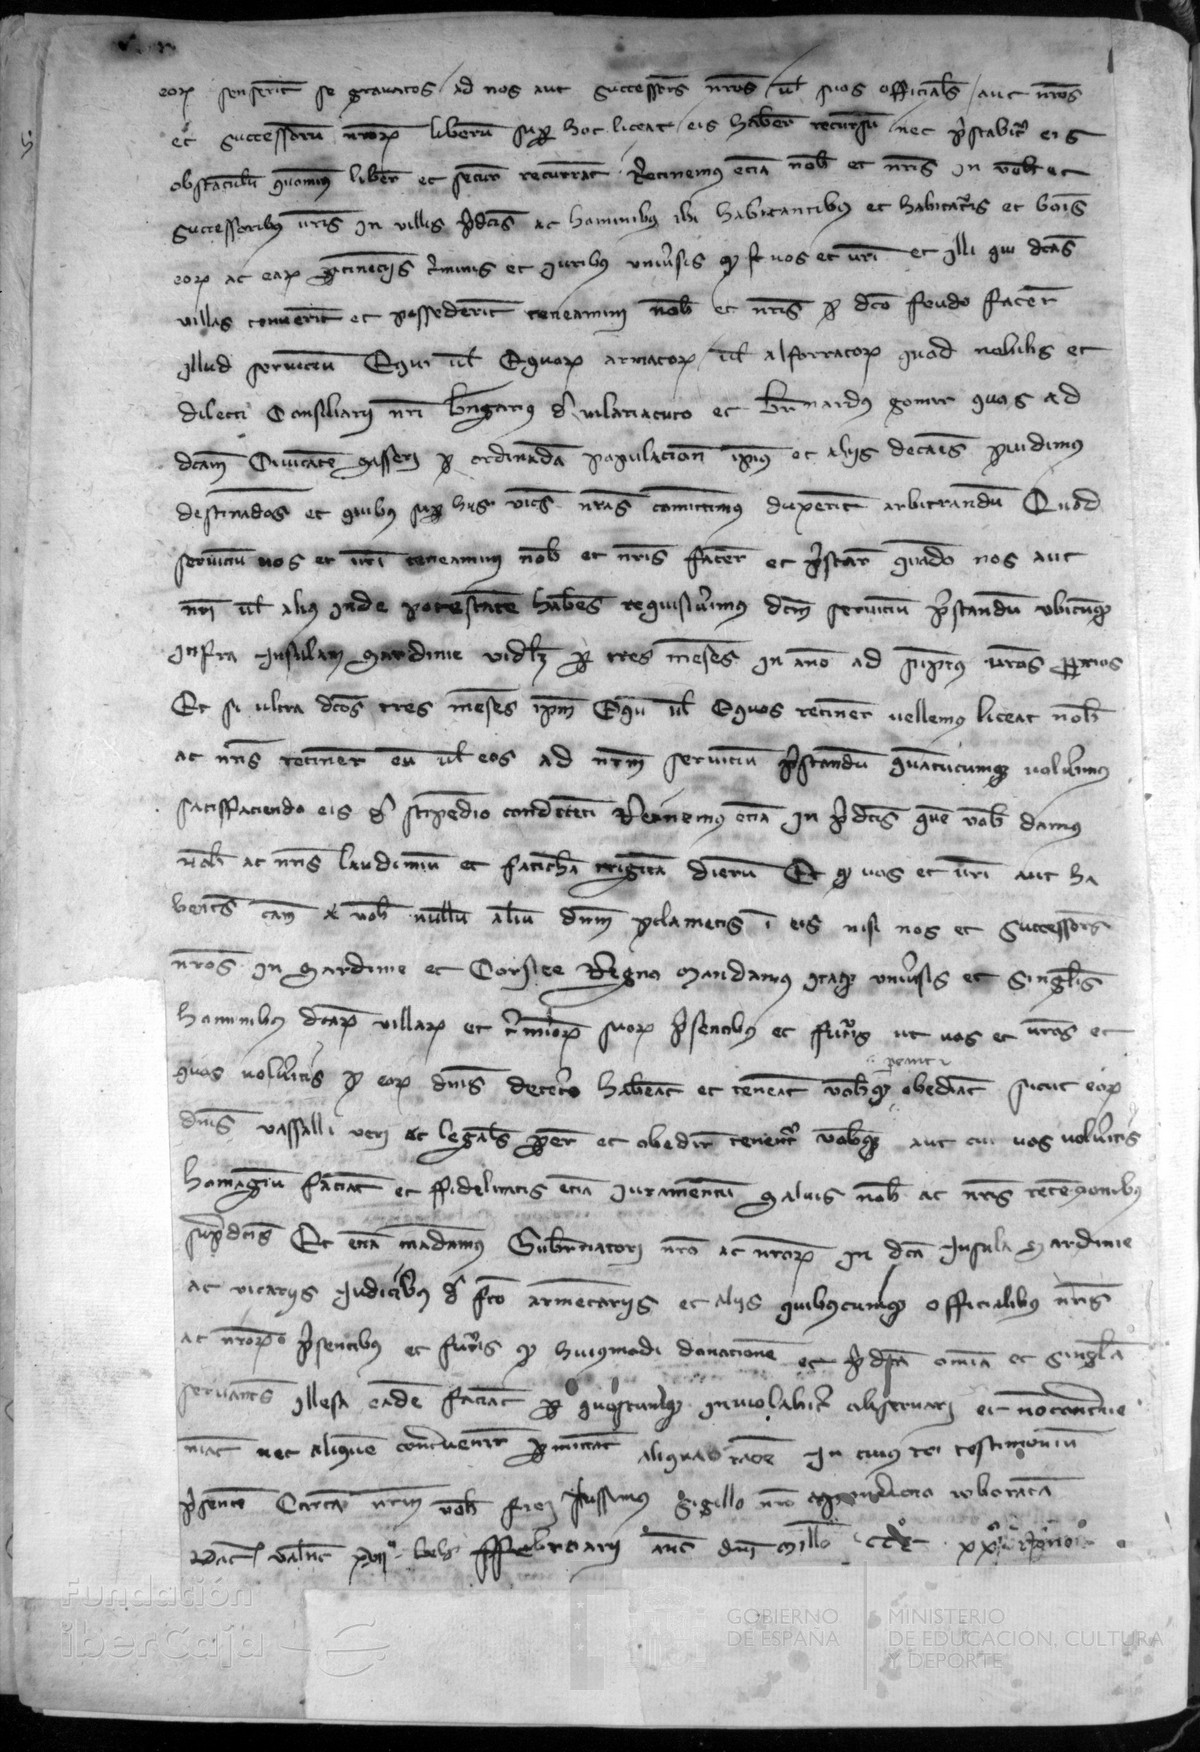 eorum senserit se gravatos / ad nos aut successores nostros / vel suos officiales / aut nostros
et successorum nostrorum liberum super hoc liceat eis habere recursum nec prestabitur eis
obstaculum quominus libere et secure recurrant Retinemus etiam nobis et nostris in vobis et
successoribus vestris in villis predictis ac hominibus ibi habitantibus et habitaturis et bonis
eorum ac earum pertinenciis terminis et juribus universis quod vos et vestri et illi qui dictas
villas tenuerint et possederint teneamini nobis et nostris pro dicto feudo facere
illud servicium Equi vel Equorum armatorum / vel alforratorum quod nobilis et
dilecti Consiliarii nostri Berengarius de vilariacuto et Bernardus gomir quos ad
dictam Civitatem Sasseri pro ordinanda populacione ipsius et aliis decens providimus
destinandos et quibus super hiis vices nostras comittimus duxerint arbitrandum Quod
servicium vos et vestri teneamini nobis et nostris facere et prestare quando nos aut
nostri vel alius inde potestatem habens requisiverimus dictum servicium prestandum ubicumque
infra Insulam Sardinie videlicet per tres menses in anno ad sumptus vestros proprios
Et si ultra dictos tres menses ipsum Equum vel Equos retinere vellemus liceat nobis
ac nostris retinere eum vel eos ad nostrum servicium prestandum quantumcumque voluerimus
satisfaciendo eis de stipendio condecenti Retinemus etiam in predictis que vobis damus
nobis ac nostris laudimium et faticham triginta dierum Et quod vos et vestri aut ha
bentes causam a vobis nullum alium dominum proclametis in eis nisi nos et successores
nostros in Sardinie et Corsice Regno Mandamus itaque universis et Singulis
hominibus dictarum villarum et terminorum suorum presentibus et futuris ut vos et vestros et
quos volueritis pro eorum dominis decetero habeant et teneant vobisque pareant et obediant sicut eorum
dominis vassalli veri et legales parere et obedire tenentur vobisque aut cui vos volueritis
homagium faciant et ffidelitatis etiam juramentum Salvis nobis ac nostris retencionibus
supradictis Et etiam mandamus Gubernatori nostro ac nostrorum in dicta Insula Sardinie
ac vicariis Judicibus de facto armentariis et aliis quibuscumque officialibus nostris
ac nostrorum presentibus et futuris quod huiusmodi donacionem et predicta omnia et singula
servantes illesa eadem faciant per quoscumque inviolabiliter observari et non contrave
niant nec aliquem contravenire permittant aliqua racione In cuius rei testimonium
presentem Cartam nostram vobis fieri jussimus Sigillo nostro appendicio roboratam
Datum Valencie ffebroarii anno domini Millesimo CCC
Fundación
iberCaja
GOBIERNO
DE ESPAÑA
MINISTERIO
DE EDUCACIÓN, CULTURA
Y DEPORTE